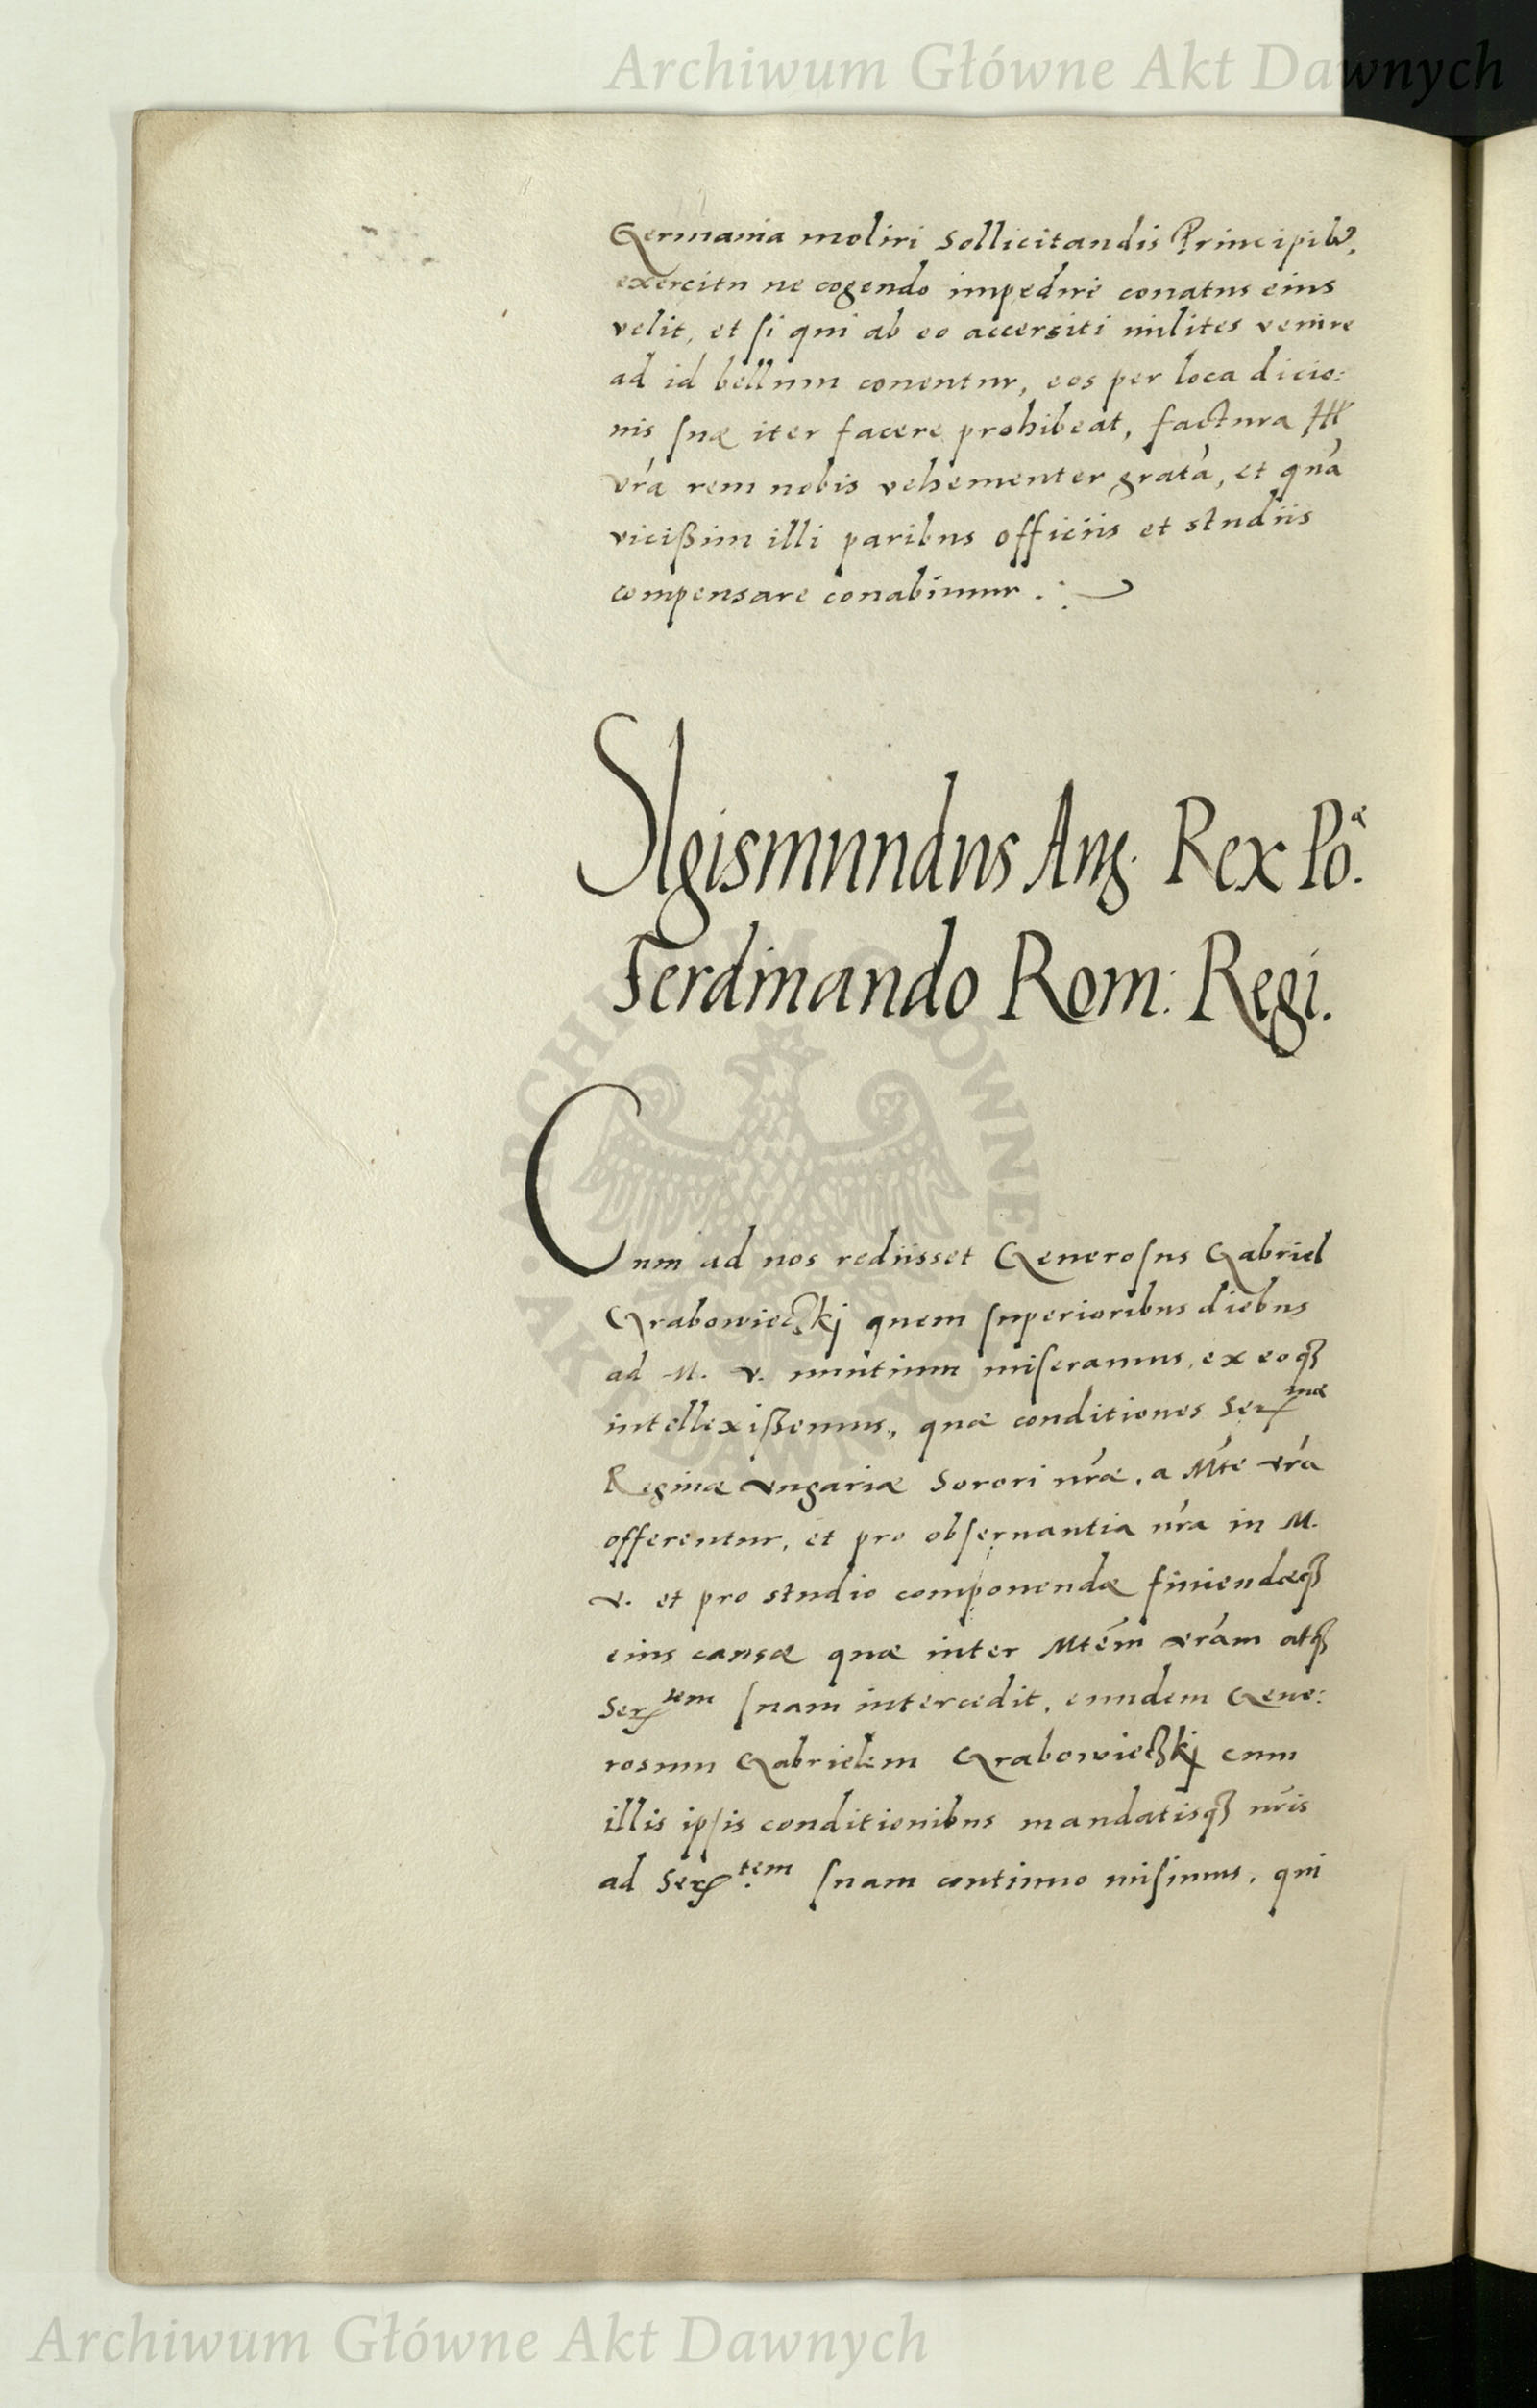 Archiwum Główne Akt Dawnych
Germania moliri sollicitandis Principib9,
exercitu ne cogendo impedire conatus eius
velit, et si qui ab eo accersiti milites venire
ad id bellum conentur, eos per loca dicio:
nis suæ iter facere prohibeat, factura
vr̃a rem nobis vehementer gratã, et quã
vicißim illi paribus officiis et studiis
compensare conabimur .
SIgismundus Aug. Rex Po.æ
Ferdinando Rom: Regi.
Cum ad nos rediisset Generosus Gabriel
Grabowieczkj quem superioribus diebus
ad M. V. nuntium miseramus, ex eoqȝ
intellexißemus, quæ conditiones Ser.mæ
Reginæ Vngariæ Sorori nr̃æ, a Mte vr̃a
offerentur, et pro obseruantia nr̃a in M.
V. et pro studio componendæ finiendæqȝ
eius causæ quæ inter Mtem vr̃am atqȝ
Ser.tem suam intercedit, eundem Gene:
rosum Gabrielem Grabowieczkj cum
illis ipsis conditionibus mandatisqȝ nr̃is
ad Ser.tem suam continuo misimus, qui
ARCHIWUM GŁÓWNE AKT DAWNYCH
Archiwum Główne Akt Dawnych